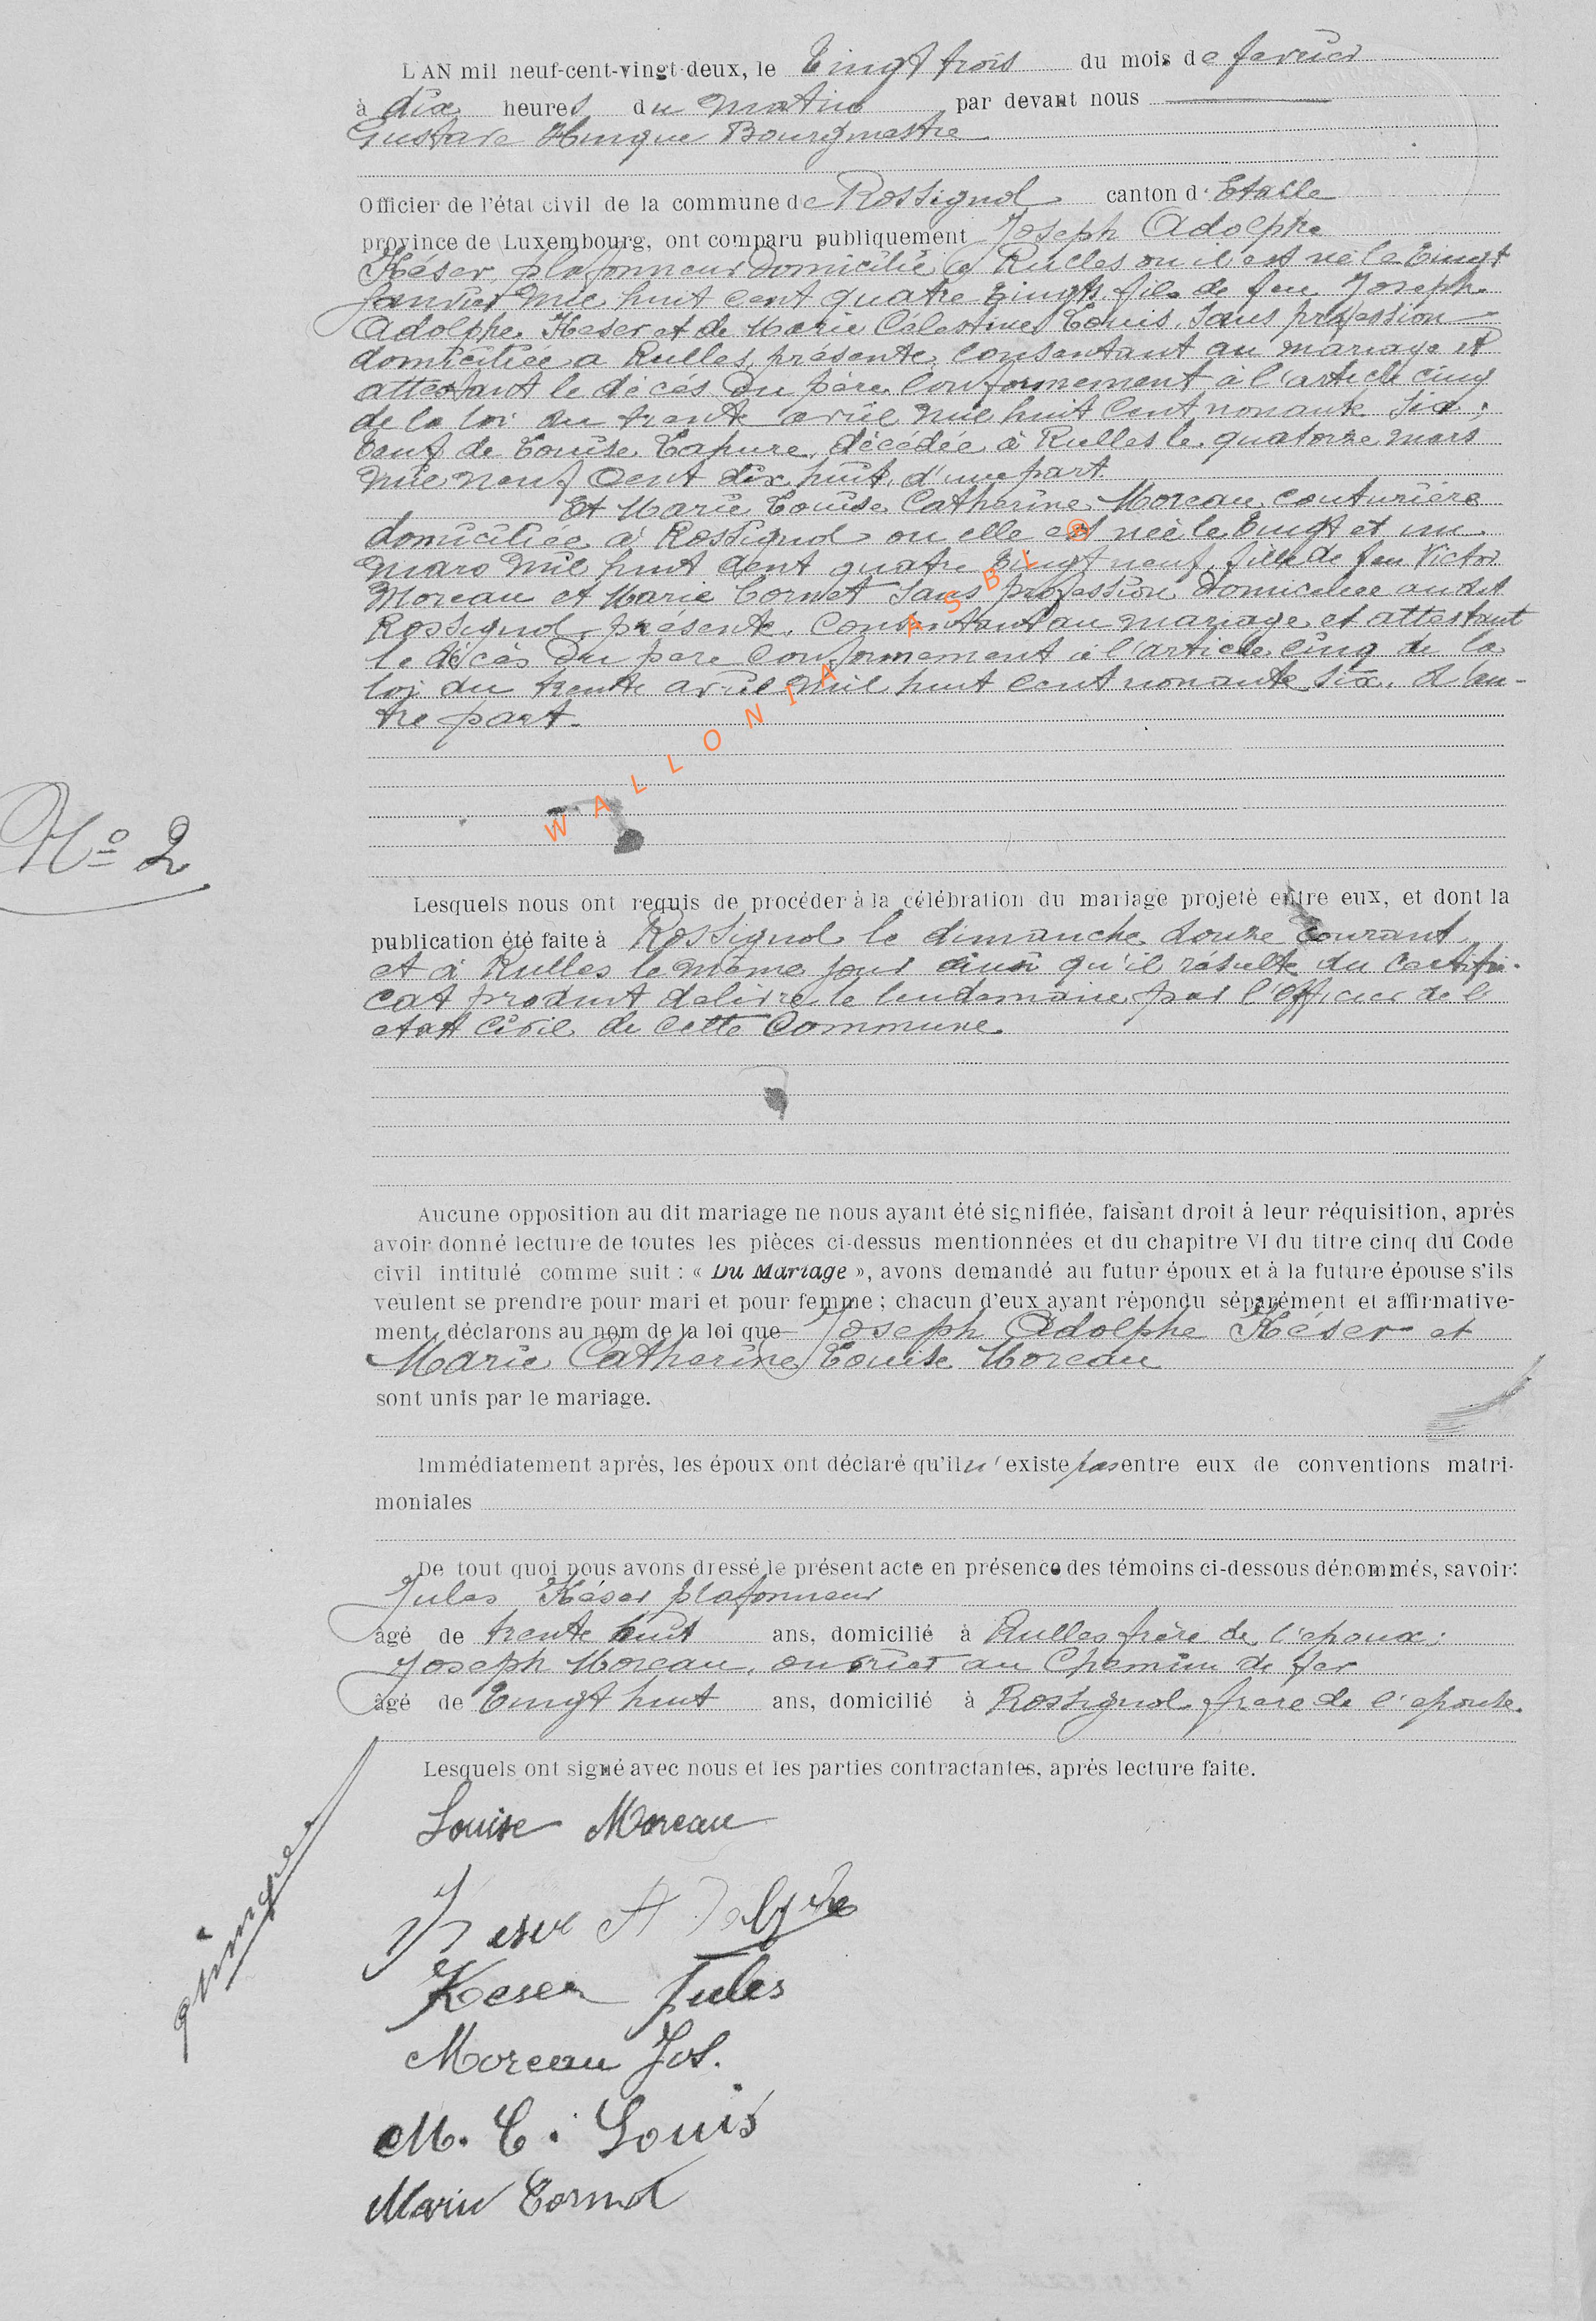 L'AN mil neuf-cent-vingt-deux, le Vingt trois du mois de fevrier
à dix heures du matin par devant nous
Gustave Hinque Bourgmestre
Officier de l'état civil de la commune de Rossignol canton d'Etalle
province de Luxembourg, ont comparu publiquement Joseph Adolphe
Késer, plafonneur domicilié à Rulles ou il est né le Vingt
Janvier mil huit cent quatre vingt, fils de feu Joseph
Adolphe Keser et de Marie Célestine Louis, sans profession
domiciliée a Rulles, présente, consentant au mariage et
attestant le décés du père conformement à l'article cinq
de la loi du trente avril mil huit cent nonante six;
Veuf de Louise Lapure, décédée à Rulles le quatorze mars
mil neuf Cent dix huit, d'une part.
Et Marie Louise Catherine Moreau couturière
domiciliée à Rossignol ou elle est née le Vingt et un
mars mil huit cent quatre vingt neuf, fille de feu Victor
Moreau et Marie Cornet sans profession domiciliée au dit
Rossignol, présente, consentant au mariage et attestant
le décès du pere conformement à l'article cinq de la
loi du trente avril mil huit cent nonante six. d'au-
tre part.
WALLONIA ASBL ®
No 2
Lesquels nous ont requis de procéder à la célébration du mariage projeté entre eux, et dont la
publication été faite à Rossignol le dimanche douze Courant
et à Rulles le même jour ainsi qu'il résulte du certifi-
cat produit delivré le lendemain par l'Officier de l'
etat Civil de Cette Commune
Aucune opposition au dit mariage ne nous ayant été signifiée, faisant droit à leur réquisition, après
avoir donné lecture de toutes les pièces ci-dessus mentionnées et du chapitre VI du titre cinq du Code
civil intitulé comme suit : « Du Mariage », avons demandé au futur époux et à la future épouse s'ils
veulent se prendre pour mari et pour femme ; chacun d'eux ayant répondu séparément et affirmative-
ment, déclarons au nom de la loi que Joseph Adolphe Késer et
Marie Catherine Louise Moreau
sont unis par le mariage.
Immédiatement après, les époux ont déclaré qu'il n'existe pas entre eux de conventions matri-
moniales
De tout quoi nous avons dressé le présent acte en présence des témoins ci-dessous dénommés, savoir:
Jules Késer plafonneur
âgé de trente huit ans, domicilié à Rulles frère de l'epoux;
Joseph Moreau, ouvrier au Chemin de fer
âgé de Vingt huit ans, domicilié à Rossignol frere de l'epouse.
Lesquels ont signé avec nous et les parties contractantes, après lecture faite.
Louise Moreau
Keser Adolphe
Keser Jules
Moreau Jos.
M. C. Louis
Marie Cornet